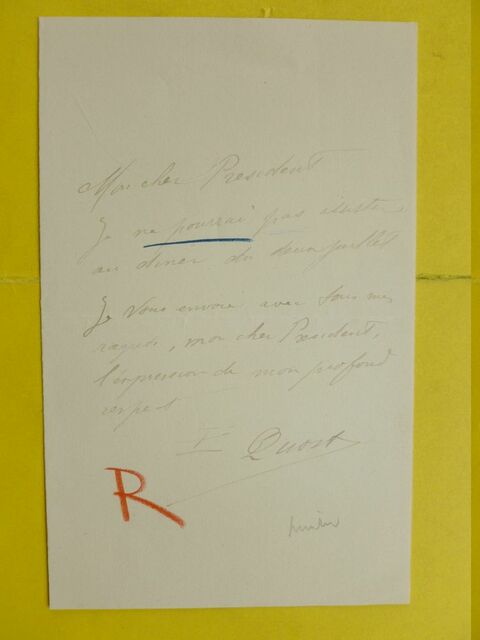 Mon cher President
Je ne pourrai pas assister
au diner du deux juillet
Je vous envoie avec tous mes
regrets, mon cher President,
l'expression de mon profond
respect
Quost
R